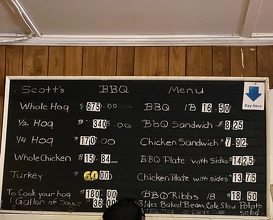 Pay Here
Scott's BBQ Menu
Whole Hog $675.00 BBQ 1B 16.50
1/2 Hog $340.00 BBQ Sandwich $8.25
1/4 Hog $170.00 Chicken Sandwich $7.92
Whole Chicken $15.84 BBQ Plate with Sides $14.25
Turkey 60.00 Chicken Plate with sides $13.75
To Cook your hog $180.00 BBQ Ribbs 1B $18.50
1 Gallon of Sauce Sides Baked Beans, Cole Slaw, Potato